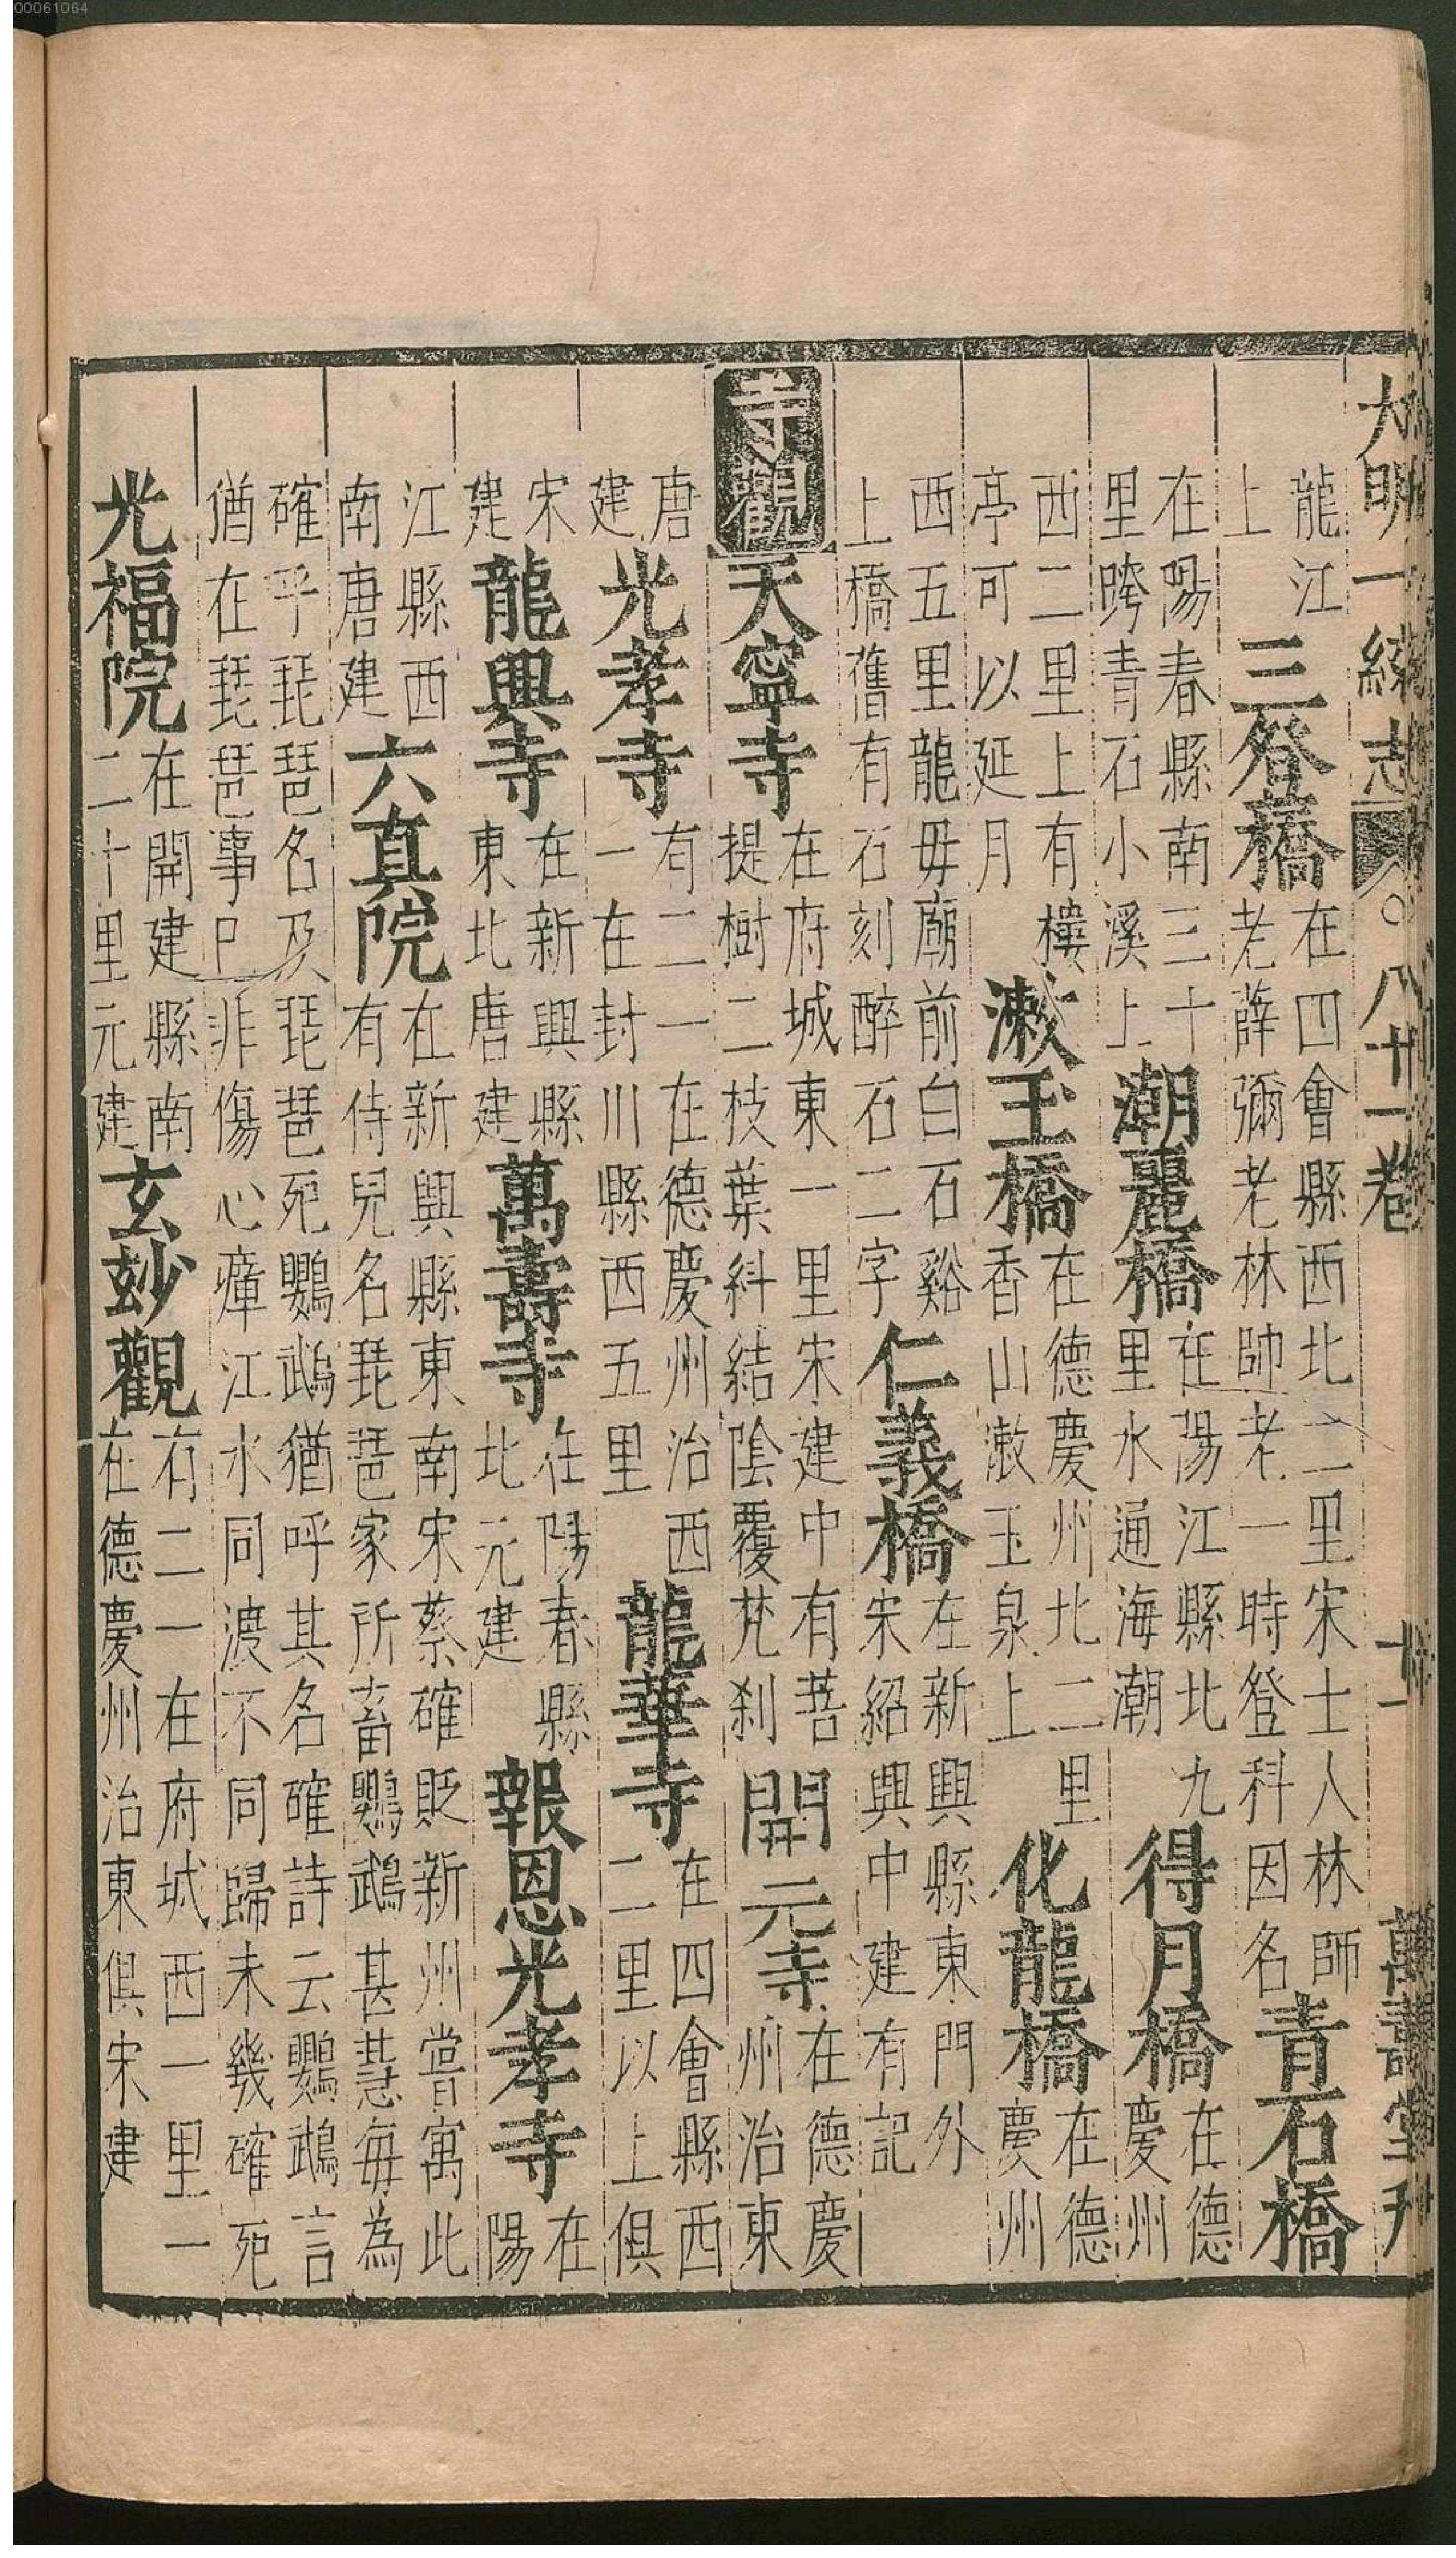 大明一統志 八十一卷 十一 萬壽堂刊
龍江上 三登橋 在四會縣西北二里宋士人林師老薛彌老林帥老一時登科因名 青石橋
在陽春縣南三十里跨青石小溪上 潮麗橋 在陽江縣北九里水通海潮 得月橋 在德慶州
西二里上有樓亭可以延月 漱玉橋 在德慶州北二里香山漱玉泉上 化龍橋 在德慶州
西五里龍毋廟前白石谿上橋舊有石刻醉石二字 仁義橋 在新興縣東門外宋紹興中建有記
寺觀 天寧寺 在府城東一里宋建中有菩提樹二枝葉糾結陰覆梵刹 開元寺 在德慶州治東
唐建 光孝寺 有二一在德慶州治西一在封川縣西五里 龍華寺 在四會縣西二里以上俱
宋建 龍興寺 在新興縣東北唐建 萬壽寺 在陽春縣北元建 報恩光孝寺 在陽
江縣西南唐建 六真院 在新興縣東南宋蔡確貶新州嘗寓此有侍兒名琵琶家所畜鸚鵡甚慧每為
確乎琵琶名及琵琶死鸚鵡猶呼其名確詩云鸚鵡言猶在琵琶事已非傷心瘴江水同渡不同歸未幾確死
光福院 在開建縣南二十里元建 玄妙觀 有二一在府城西一里一在德慶州治東俱宋建
00061064